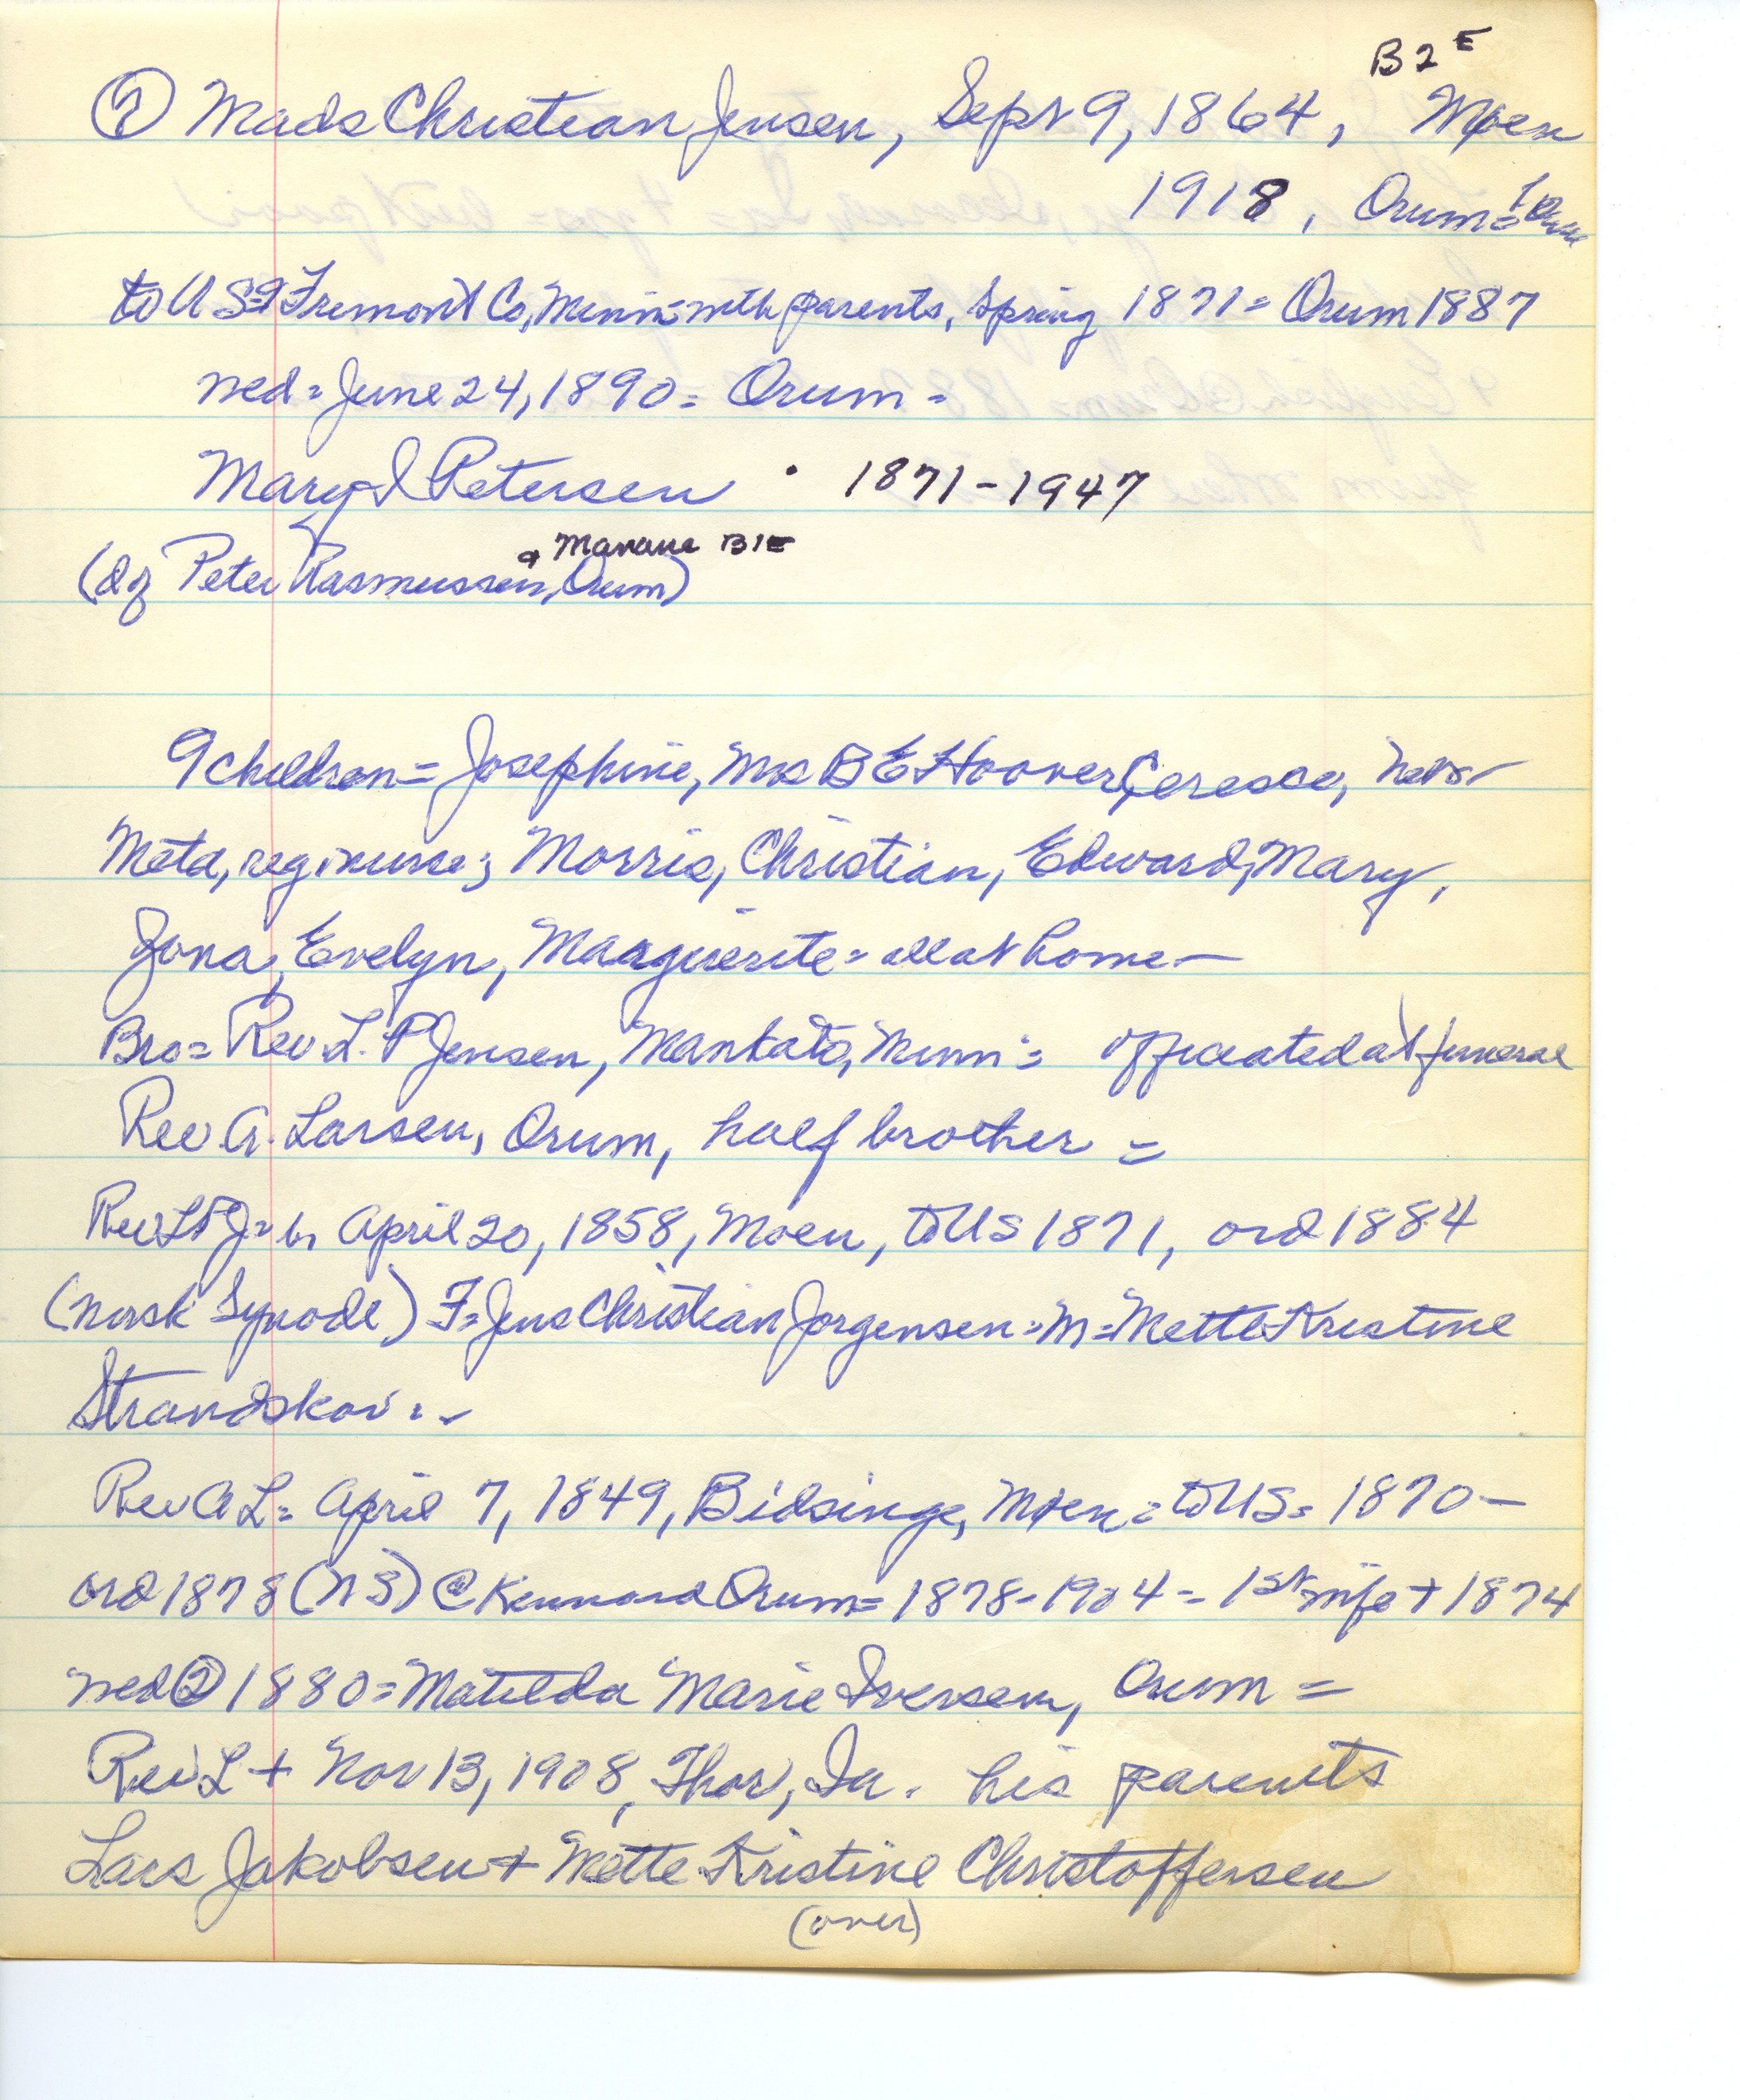 B2E
⑦ Mads Christian Jensen, Sept 9, 1864, Moen
1918, Orum =
to US = Fremont Co, Minn = with parents, spring 1871 = Orum 1887
med = June 24, 1890 = Orum =
Mary I Petersen · 1871-1947
& Marane B1E
(d of Peter Rasmussen, Orum)
9 children = Josephine, Mrs B E Hoover, Ceresco, Nebr
Meta, reg. nurse; Morris, Christian, Edward, Mary,
Jona, Evelyn, Maarguerite = all at home —
Bro = Rev L. P Jensen, Mankato, Minn = officiated at funeral
Rev A. Larsen, Orum, half brother =
Rev L P J = b, April 20, 1858, Moen, to US 1871, ord 1884
(Norsk Synode) F = Jens Christian Jorgensen = M = Mette Kristine
Strandskov . . -
Rev A L = April 7, 1849, Bidsinge, Moen = to US = 1870 —
ord 1878 (N S) @ Kennard Orum = 1878-1904 = 1st wife + 1874
med ② 1880 = Matilda Marie Iversen, Orum =
Rev L + Nov 13, 1908, Thor, Ia. his parents
Lars Jakobsen + Mette Kristine Christoffersen
(over)